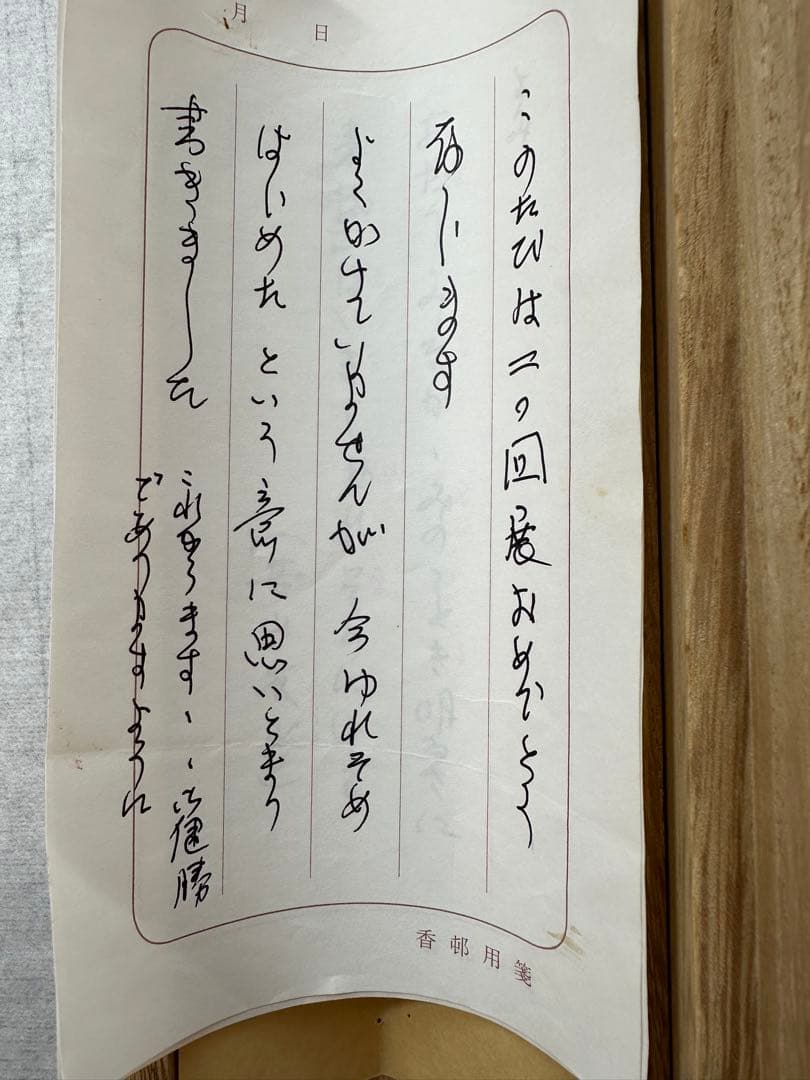 月　日
このたびは二の回展おめでとう
存じます
よくかけていませんが 今ゆれそめ
はじめた という意に思いとまり
書きました
これからますます、御健勝
でありますように
香邨用箋